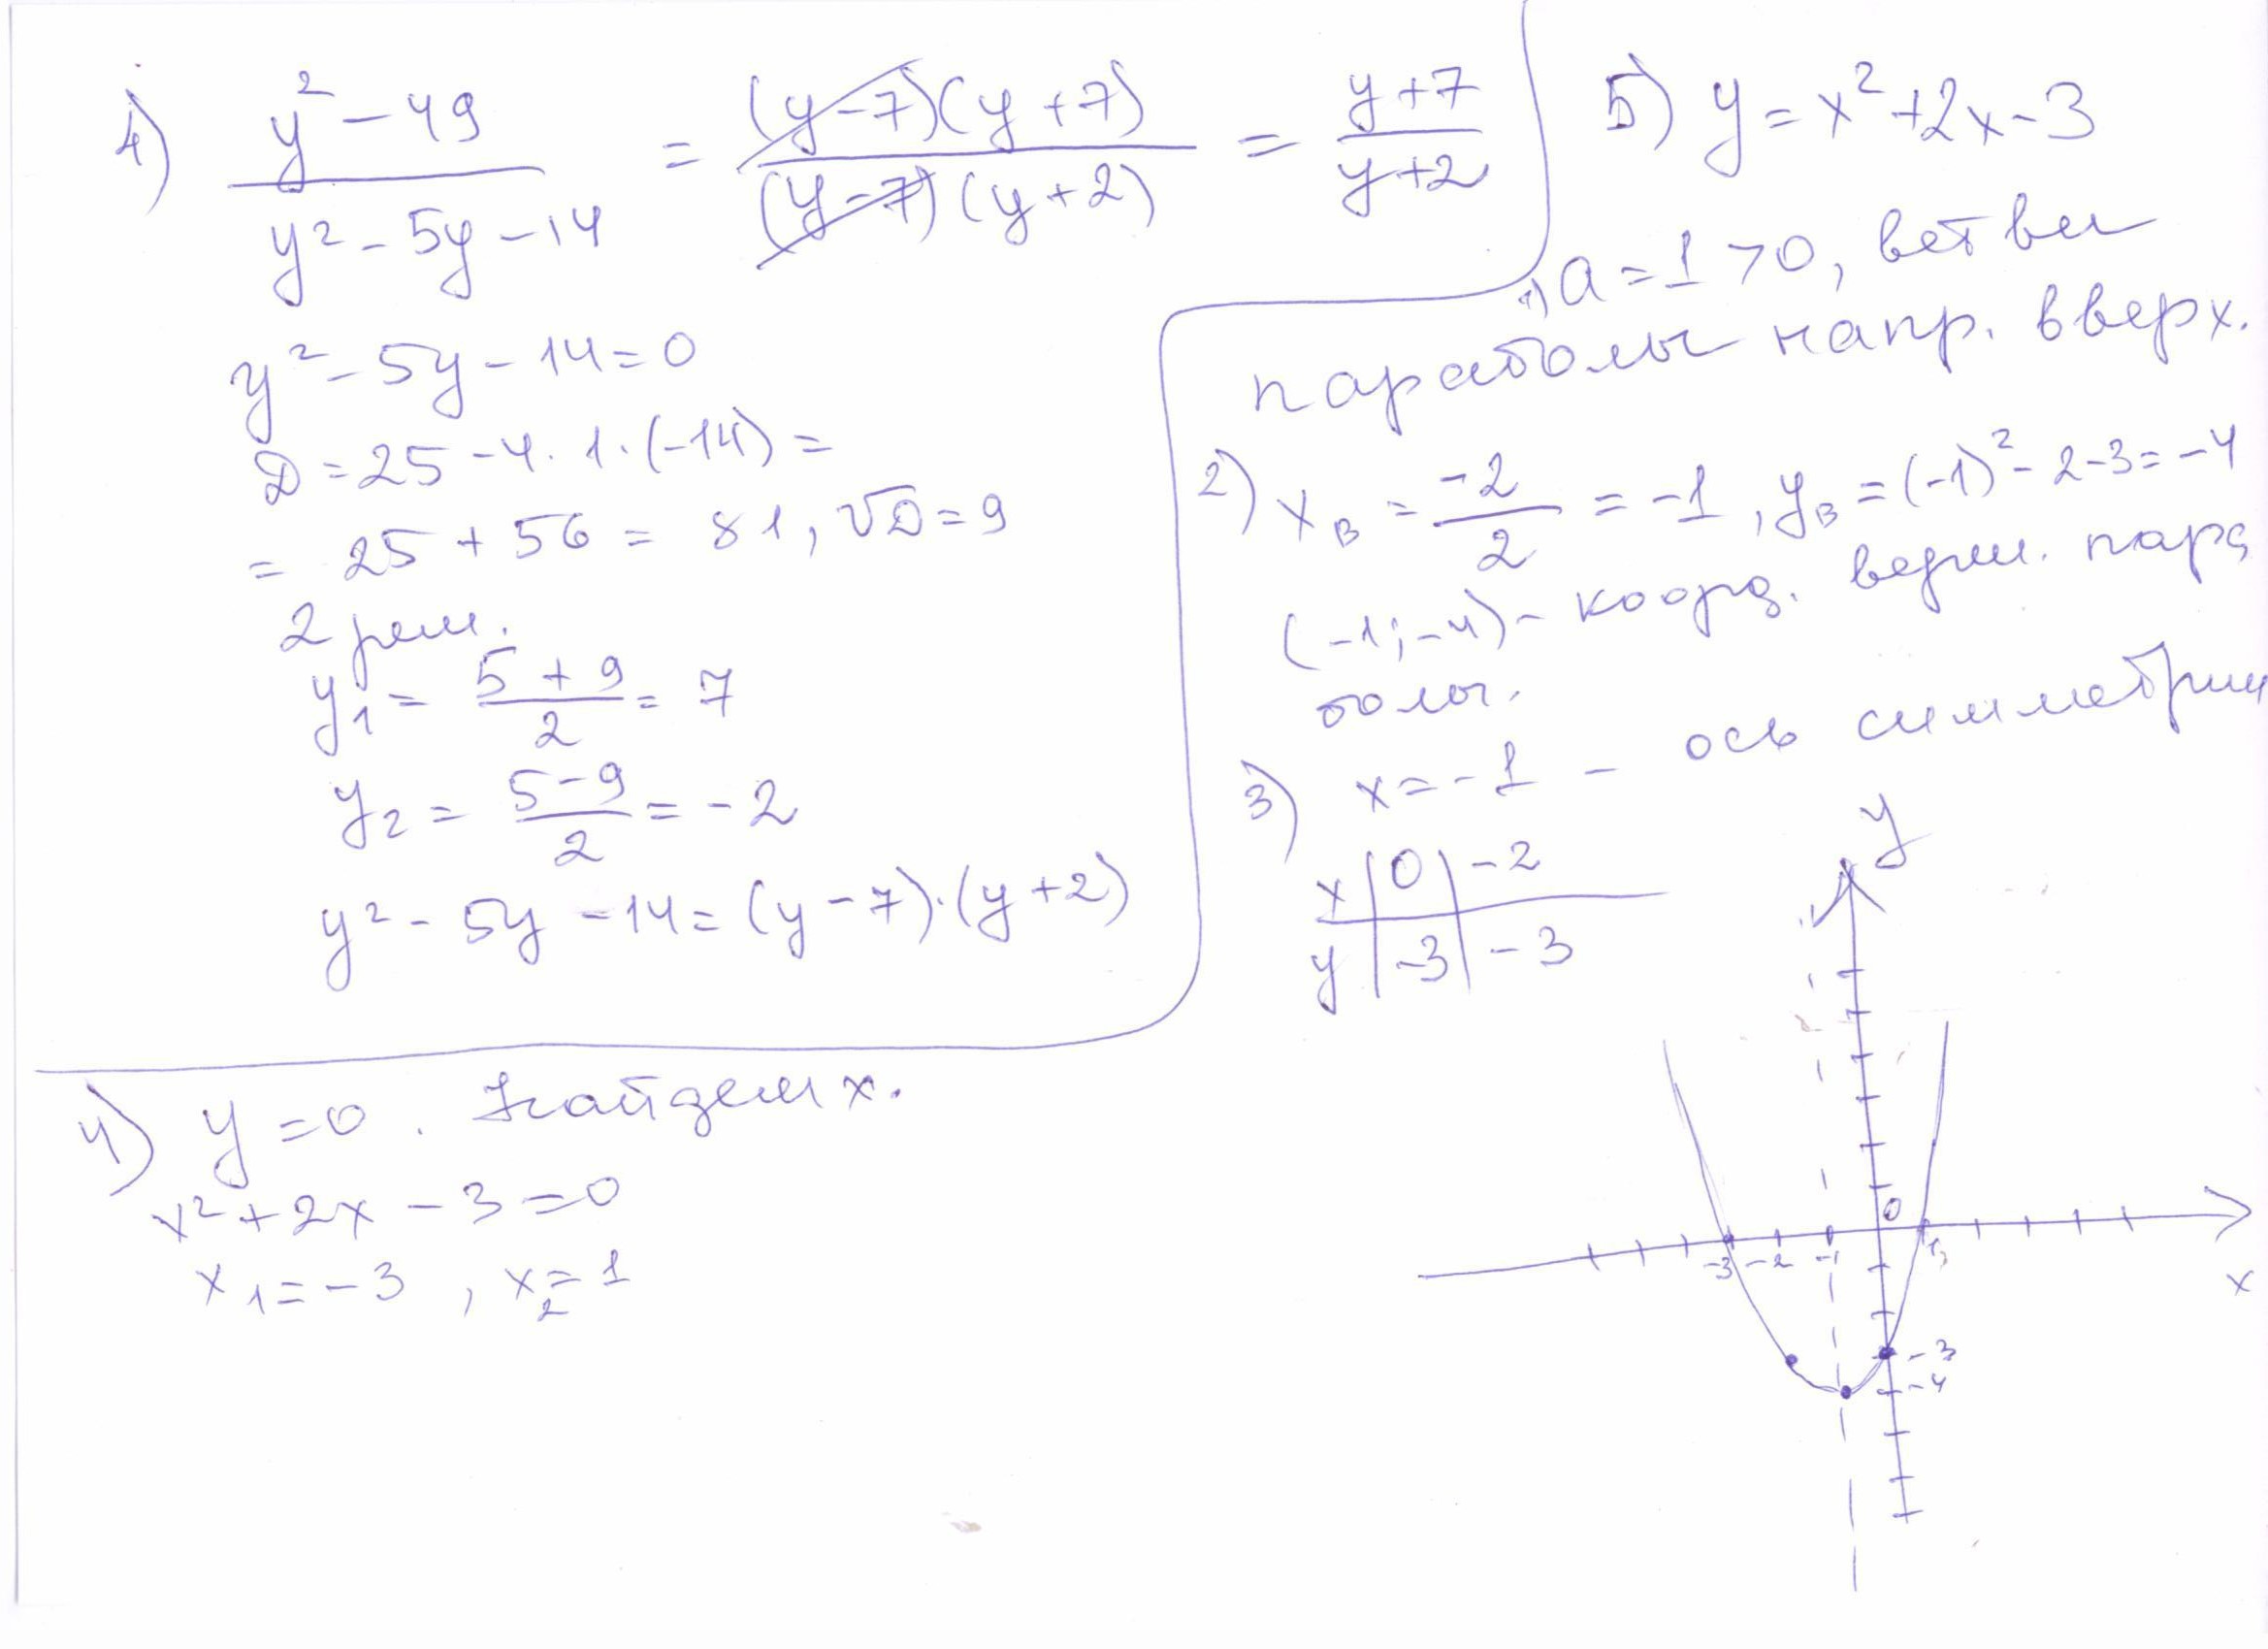 4) (y² - 49)/(y² - 5y - 14) = ((y-7)(y+7))/((y-7)(y+2)) = (y+7)/(y+2)
y² - 5y - 14 = 0
D = 25 - 4 · 1 · (-14) =
= 25 + 56 = 81, √D = 9
2 реш.
y₁ = (5+9)/2 = 7
y₂ = (5-9)/2 = -2
y² - 5y - 14 = (y - 7)·(y + 2)
5) y = x² + 2x - 3
1) a = 1 > 0, ветви
параболы напр. вверх.
2) xв = -2/2 = -1, yв = (-1)² - 2 - 3 = -4
(-1; -4) - коорд. верш. пара
болы.
3) x = -1 - ось симметрии
x | 0 | -2
y | -3 | -3
4) y = 0. Найдем x.
x² + 2x - 3 = 0
x₁ = -3, x₂ = 1
y
0
-3 -2 -1 1
x
-3
-4